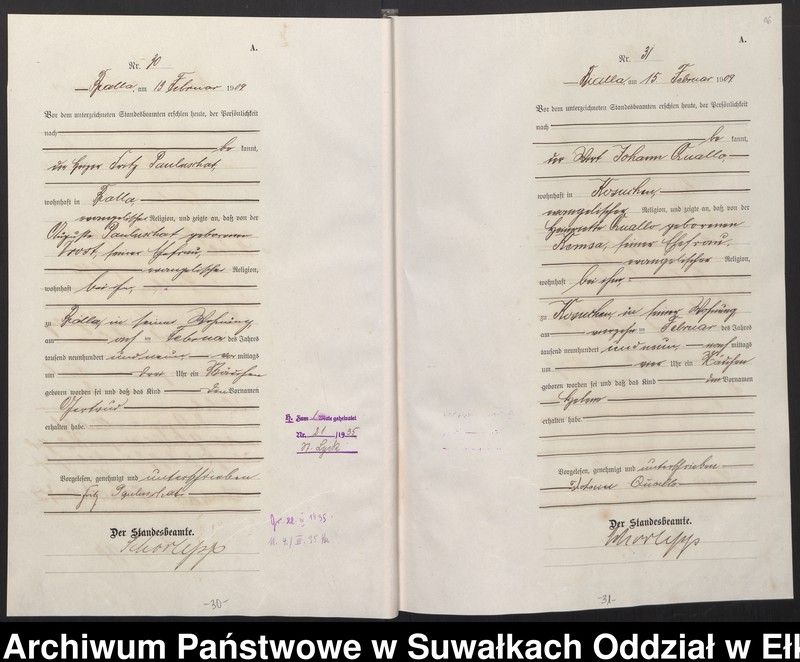 A.
Nr. 30
Kalla, am 13 Februar 1909
Vor dem unterzeichneten Standesbeamten erschien heute, der Persönlichkeit
nach
be kannt,
der Fritz Pauluschat
wohnhaft in Kalla
evangelischer Religion, und zeigte an, daß von der
Auguste Pauluschat geborenen
seiner Ehefrau,
evangelischer Religion,
wohnhaft bei ihm,
zu Kalla in seiner Wohnung
am Februar des Jahres
tausend neunhundert und neun vor mittags
um drei Uhr ein Mädchen
geboren worden sei und daß das Kind den Vornamen
Gertrud
erhalten habe.
Vorgelesen, genehmigt und unterschrieben
Fritz Pauluschat
Der Standesbeamte.
-30-
H. Zum 1 Male geheiratet
Nr. 21 /1935
St. Lyck
16
A.
Nr. 31
Kalla, am 15 Februar 1909
Vor dem unterzeichneten Standesbeamten erschien heute, der Persönlichkeit
nach
be kannt,
der Wirt Johann Quallo
wohnhaft in Kosuchen
evangelischer Religion, und zeigte an, daß von der
Henriette Quallo geborenen
Kemsa, seiner Ehefrau,
evangelischer Religion,
wohnhaft bei ihm,
zu Kosuchen in seiner Wohnung
am vierzehn Februar des Jahres
tausend neunhundert und neun nach mittags
um vier Uhr ein Mädchen
geboren worden sei und daß das Kind den Vornamen
erhalten habe.
Vorgelesen, genehmigt und unterschrieben
Johann Quallo
Der Standesbeamte.
-31-
Archiwum Państwowe w Suwałkach Oddział w Ełk